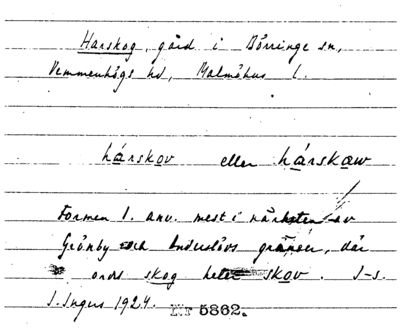 Harskog, gård i Börringe sn,
Vemmenhögs hd, Malmöhus l.
hárskov eller hárskæw
Formen 1. anv. mest i närheten av
Grönby och Anderslövs gränser, där
ordet skog heter skov. I-s.
I. Ingers 1924. Nr 5862.